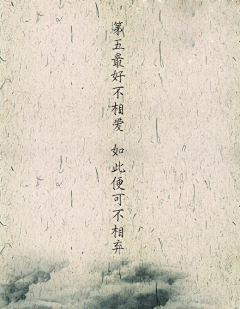 第五最好不相爱 如此便可不相弃